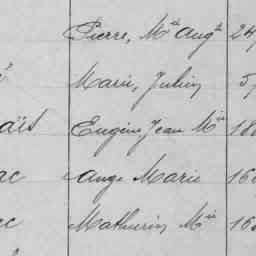 Pierre, Mie Augte 24
Marie, Julien 57
Eugène Jean Mie 18
ac Ange Marie 16
Mathurin Mie 16